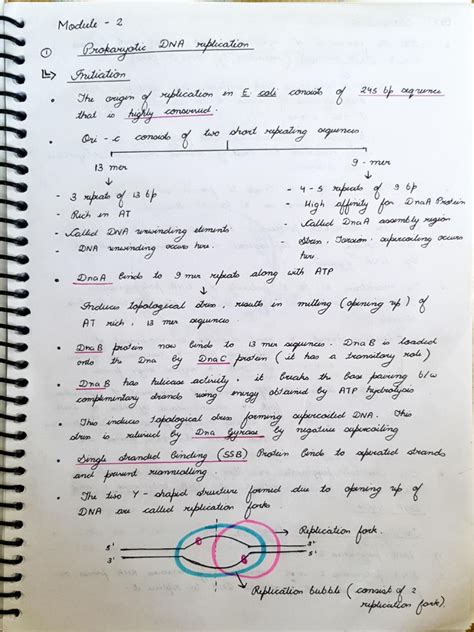 Module - 2
① Prokaryotic DNA replication
↳ Initiation
• The origin of replication in E coli consists of 245 bp sequence
that is highly conserved.
• Ori - c consists of two short repeating sequences
13 mer
9 - mer
- 3 repeats of 13 bp
- Rich in AT
- Called DNA unwinding elements
DNA unwinding occurs here.
- 4 - 5 repeats of 9 bp
- High affinity for DnaA Protein
- Called DnaA assembly region
- Stress, Torsion, supercoiling occurs
here
• DnaA binds to 9 mer repeats along with ATP
Induces topological stress, results in melting (opening up) of
AT rich, 13 mer sequences
• DnaB protein now binds to 13 mer sequences. DnaB is loaded
onto the Dna by DnaC protein (it has a transitory role)
• DnaB has helicase activity it breaks the base pairing b/w
complimentary strands using energy obtained by ATP hydrolysis
• This induces topological stress forming supercoiled DNA. This
stress is relieved by Dna Gyrase by negative supercoiling
• Single stranded binding (SSB) Protein binds to separated strands
and prevent reannealling.
• The two Y - shaped structure formed due to opening up of
DNA are called replication forks
Replication fork.
5' 3'
3' 5'
B
B
Replication bubble (consist of 2
replication fork).